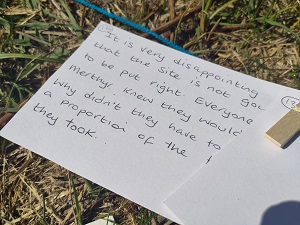 It is very disappointing
that the site is not goi
to be put right. Everyone
Merthyr knew they would
Why didn't they have to
a proportion of the
they took.
(13